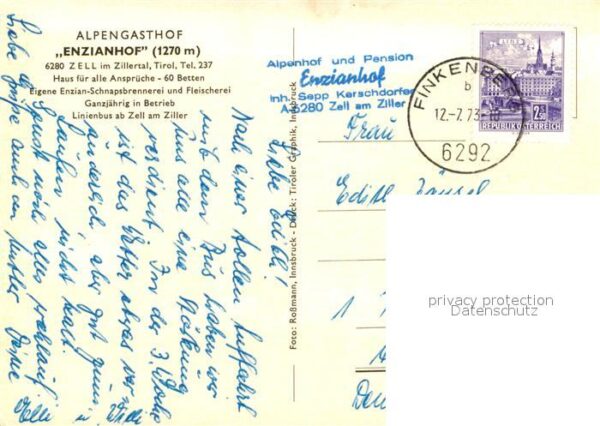 ALPENGASTHOF
„ENZIANHOF" (1270 m)
6280 ZELL im Zillertal, Tirol, Tel. 237
Haus für alle Ansprüche - 60 Betten
Eigene Enzian-Schnapsbrennerei und Fleischerei
Ganzjährig in Betrieb
Linienbus ab Zell am Ziller
Alpenhof und Pension
Enzianhof
Inh. Sepp Kerschdorfer
6280 Zell am Ziller
LINZ
2.50
REPUBLIK ÖSTERREICH
FINKENBERG
b
12.-7.73-
6292
Foto: Roßmann, Innsbruck - Druck: Tiroler Graphik, Innsbruck
Frau
Edith
Liebe Edith!
Nach einer tollen Auffahrt
mit dem Bus haben wir
uns alle eine Stärkung
verdient. In der 3. Woche
ist das Wetter etwas ver-
änderlich aber gut zum
Laufen, nicht kalt.
Sonst noch alles wohlauf
Liebe Grüße auch an Mutter
Deine
Elli u. Willi
privacy protection
Datenschutz